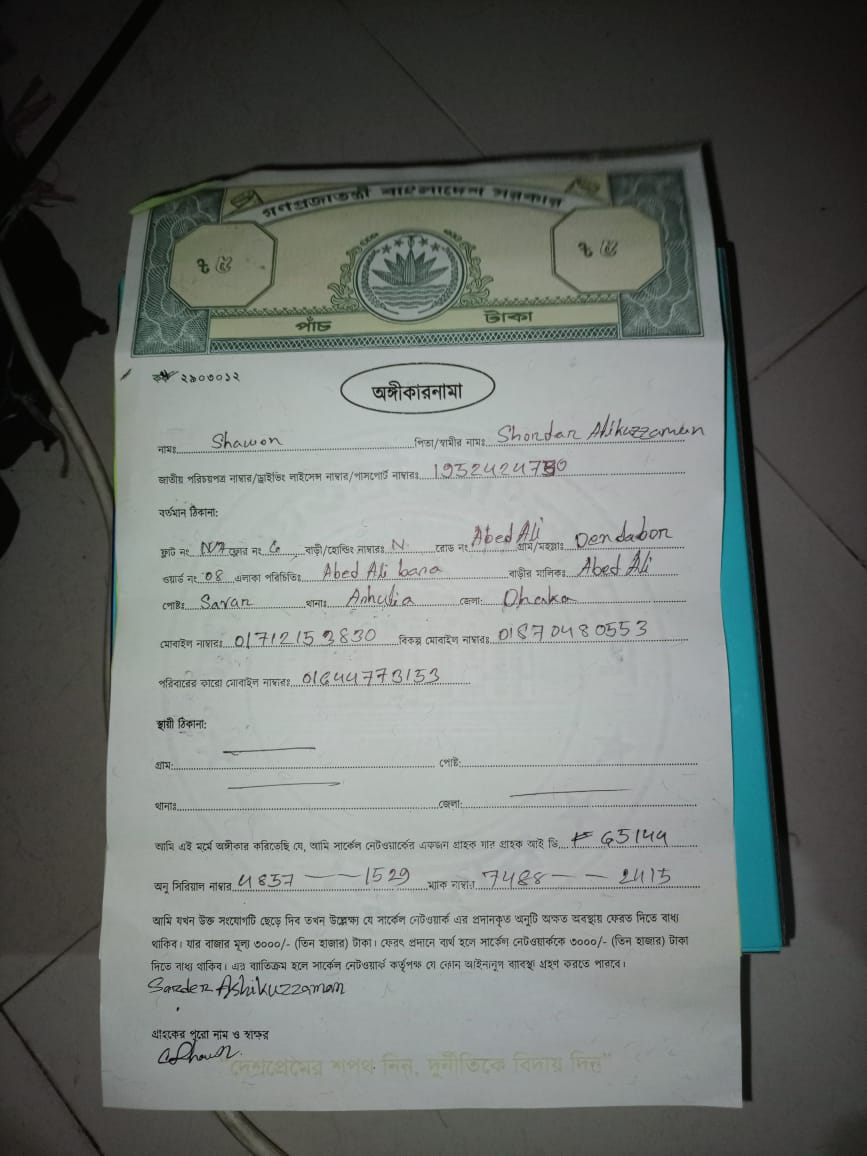 গণপ্রজাতন্ত্রী বাংলাদেশ সরকার
৳ ৫ ৳ ৫
পাঁচ টাকা
২৯০৩০১২
অঙ্গীকারনামা
নামঃ Shawon পিতা/স্বামীর নামঃ Shordar Ahikuzzaman
জাতীয় পরিচয়পত্র নাম্বার/ড্রাইভিং লাইসেন্স নাম্বার/পাসপোর্ট নাম্বারঃ
বর্তমান ঠিকানা:
ফ্লাট নং N/7 ফ্লোর নং 6 বাড়ী/হোল্ডিং নাম্বারঃ N রোড নং Abed Ali গ্রাম/মহল্লাঃ Dendabon
ওয়ার্ড নং 08 এলাকা পরিচিতিঃ Abed Ali bara বাড়ীর মালিকঃ Abed Ali
পোষ্টঃ Savar থানাঃ Ashulia জেলা: Dhaka
মোবাইল নাম্বারঃ 01712153830 বিকল্প মোবাইল নাম্বারঃ 01870480553
পরিবারের কারো মোবাইল নাম্বারঃ 01644773153
স্থায়ী ঠিকানা:
গ্রাম: পোষ্ট:
থানাঃ জেলা:
আমি এই মর্মে অঙ্গীকার করিতেছি যে, আমি সার্কেল নেটওয়ার্কের একজন গ্রাহক যার গ্রাহক আই ডি 65144
অনু সিরিয়াল নাম্বার 4857 — — 1529 ম্যাক নাম্বার 7488 — — 2415
আমি যখন উক্ত সংযোগটি ছেড়ে দিব তখন উল্লেক্ষ্য যে সার্কেল নেটওয়ার্ক এর প্রদানকৃত অনুটি অক্ষত অবস্থায় ফেরত দিতে বাধ্য
থাকিব। যার বাজার মূল্য ৩০০০/- (তিন হাজার) টাকা। ফেরৎ প্রদানে ব্যর্থ হলে সার্কেল নেটওয়ার্ককে ৩০০০/- (তিন হাজার) টাকা
দিতে বাধ্য থাকিব। এর ব্যতিক্রম হলে সার্কেল নেটওয়ার্ক কর্তৃপক্ষ যে কোন আইনানুগ ব্যবস্থা গ্রহণ করতে পারবে।
Sarder Ashikuzzaman
গ্রাহকের পুরো নাম ও স্বাক্ষর
"দেশপ্রেমের শপথ নিন, দুর্নীতিকে বিদায় দিন"